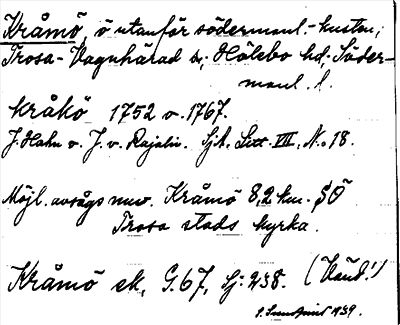 Kråmö, ö utanför södermanl.-kusten;
Trosa-Vagnhärad s:; Hölebo hd; Söder-
manl. l.
kråkö 1752 o. 1767.
J. Hahn o. J. v. Rajalin. SjA. Litt. VII, N:o 18.
Möjl. avsågs nuv. Kråmö 8,2 km. SÖ
Trosa stads kyrka.
Kråmö ek, G. 67, Sj: 238.
1939.